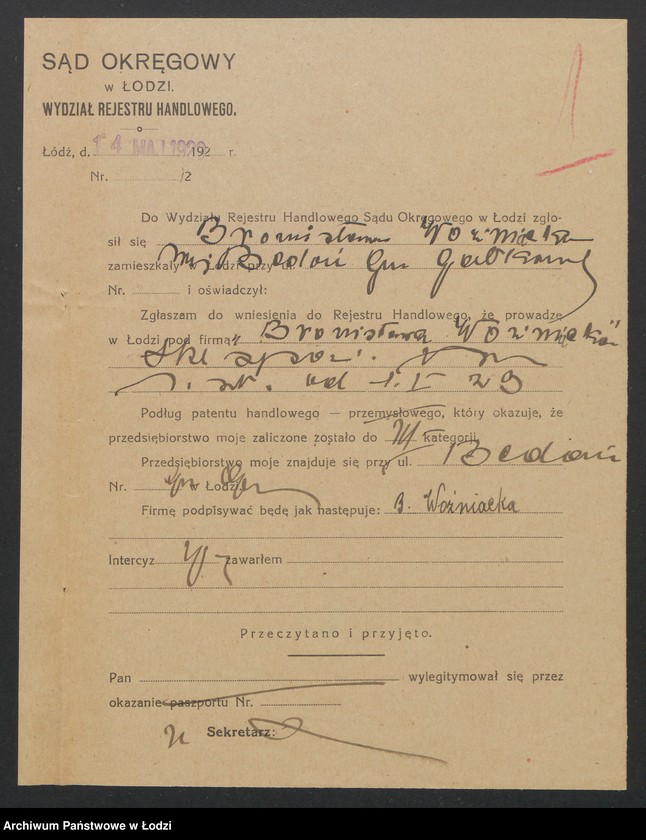 SĄD OKRĘGOWY
W ŁODZI.
WYDZIAŁ REJESTRU HANDLOWEGO.
Łódź, d. 14 MAJ 1929 /192 r.
Nr. /2
1
Do Wydziału Rejestru Handlowego Sądu Okręgowego w Łodzi zgło-
sił się Bronisława Woźniacka
zamieszkały w Łodzi przy ul. Bedoń Gm
Nr. i oświadczył:
Zgłaszam do wniesienia do Rejestru Handlowego, że prowadzę
w Łodzi pod firmą „Bronisława Woźniacka"
od 1.I 29
Podług patentu handlowego — przemysłowego, który okazuje, że
przedsiębiorstwo moje zaliczone zostało do III kategorji
Przedsiębiorstwo moje znajduje się przy ul. Bedoń
Nr. w Łodzi
Firmę podpisywać będę jak następuje: B. Woźniacka
Intercyz zawarłem
Przeczytano i przyjęto.
Pan wylegitymował się przez
okazanie paszportu Nr.
Sekretarz:
Archiwum Państwowe w Łodzi